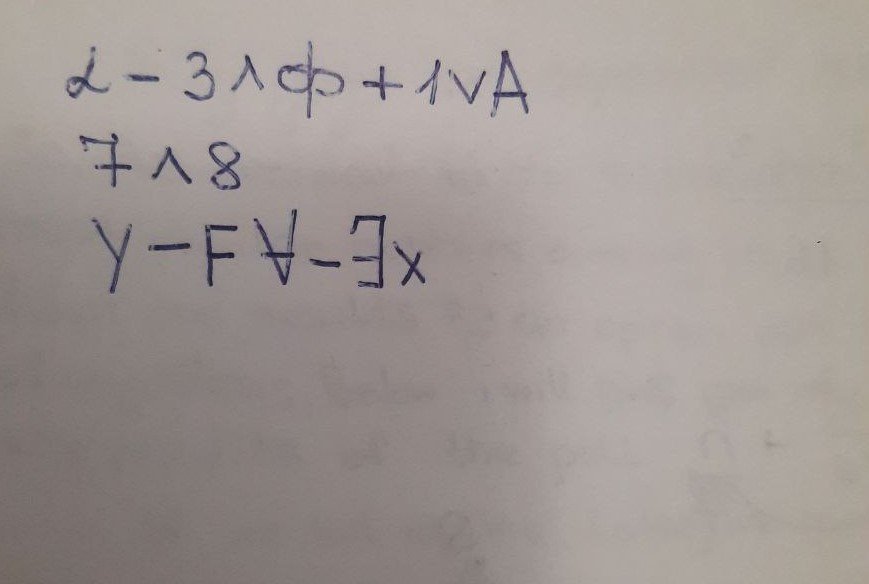 α - 3 ∧ ф + 1 ∨ A
7 ∧ 8
y - F ∀ - ∃ x